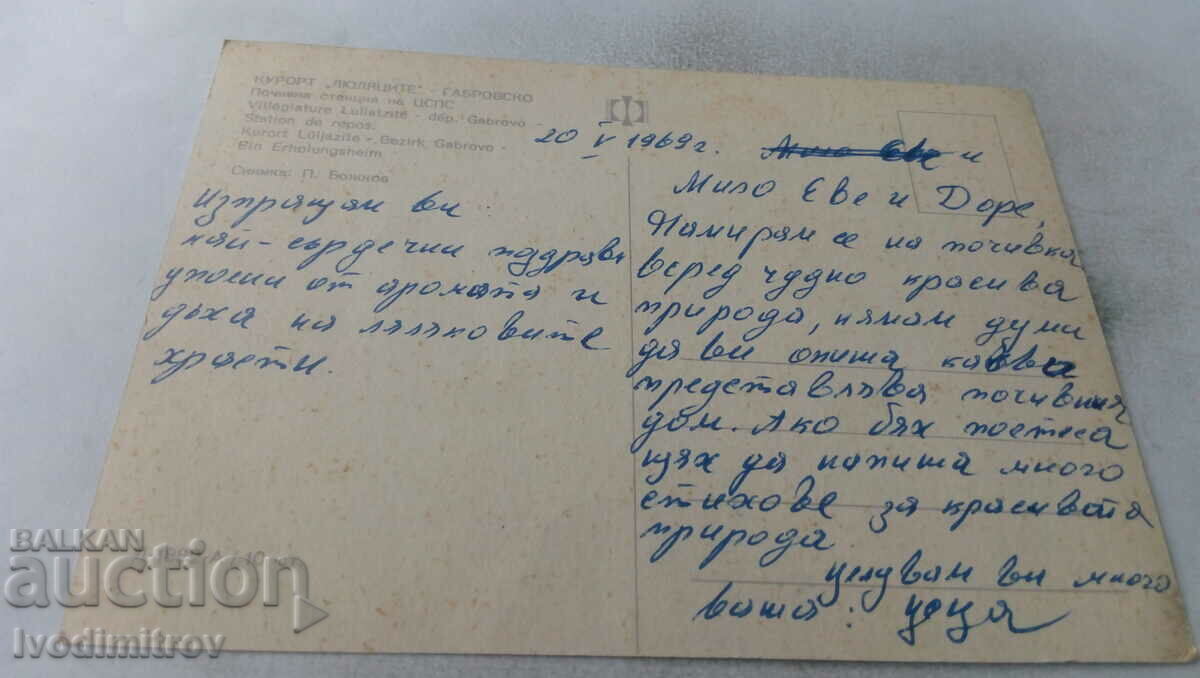 КУРОРТ „ЛЮЛЯЦИТЕ" - ГАБРОВСКО
Почивна станция на ЦСПС
Villegiature Luliatzité - dép. Gabrovo -
Station de repos.
Kurort Lüljazite - Bezirk Gabrovo -
Ein Erholungsheim
Снимка: П. Божков
20 V 1969 г.
Мила Еве и
Мила Еве и Доре,
Намирам се на почивка
всред чудно красива
природа, нямам думи
да ви опиша какво
представлява почивния
дом. Ако бях поетеса
щях да напиша много
стихове за красивата
природа.
Целувам ви много
ваша:
Изпращам ви
най-сърдечни поздрави
упоени от аромата и
дъха на люляковите
храсти.
BALKAN
auction
Ivodimitrov